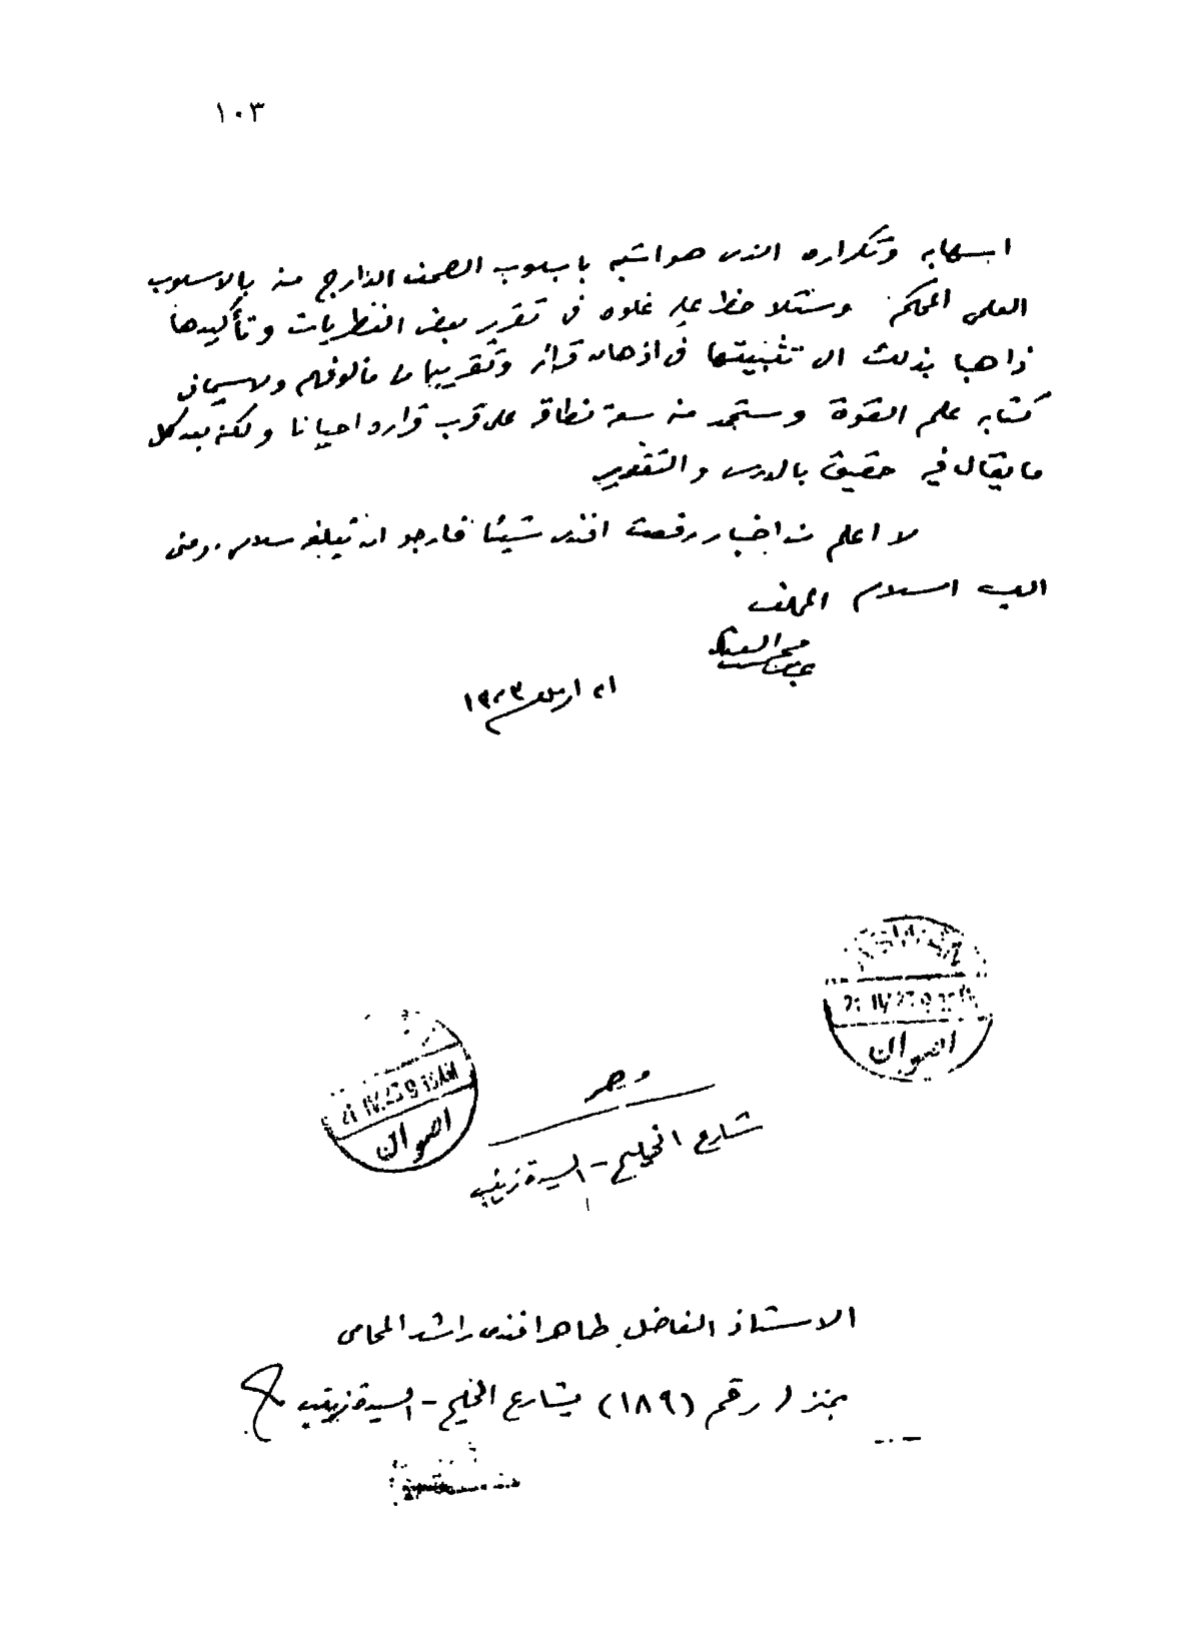 ١٠٣
اسهابه وتكراره الذى هو اشبه باسلوب الصحف الدارج منه بالاسلوب
العلمى المحكم. وستلاحظ عليه غلوه فى تقرير بعض النظريات وتأكيدها
ذاهبا بذلك الى تثبيتها فى اذهان قرائه وتقريبها من مألوفهم ولا سيما فى
كتابه علم القوة وستجد منه سعة نطاقه على قرب قراره احيانا ولكنه بعد كل
ما يقال فيه حقيق بالدرس والتقدير
لا اعلم من اخبار رفعت افندى شيئا فارجو ان تبلغه سلامى. ومنى
اليك السلام المخلص
عباس محمود العقاد
ابريل ١٩٢٣
21 IV.23 9
اصوان
21 IV.23 9 AM
اصوان
مصر
شارع الخليج - السيدة زينب
الاستاذ الفاضل طاهر افندى راشد المحامى
بمنزل رقم (١٨٩) بشارع الخليج - السيدة زينب